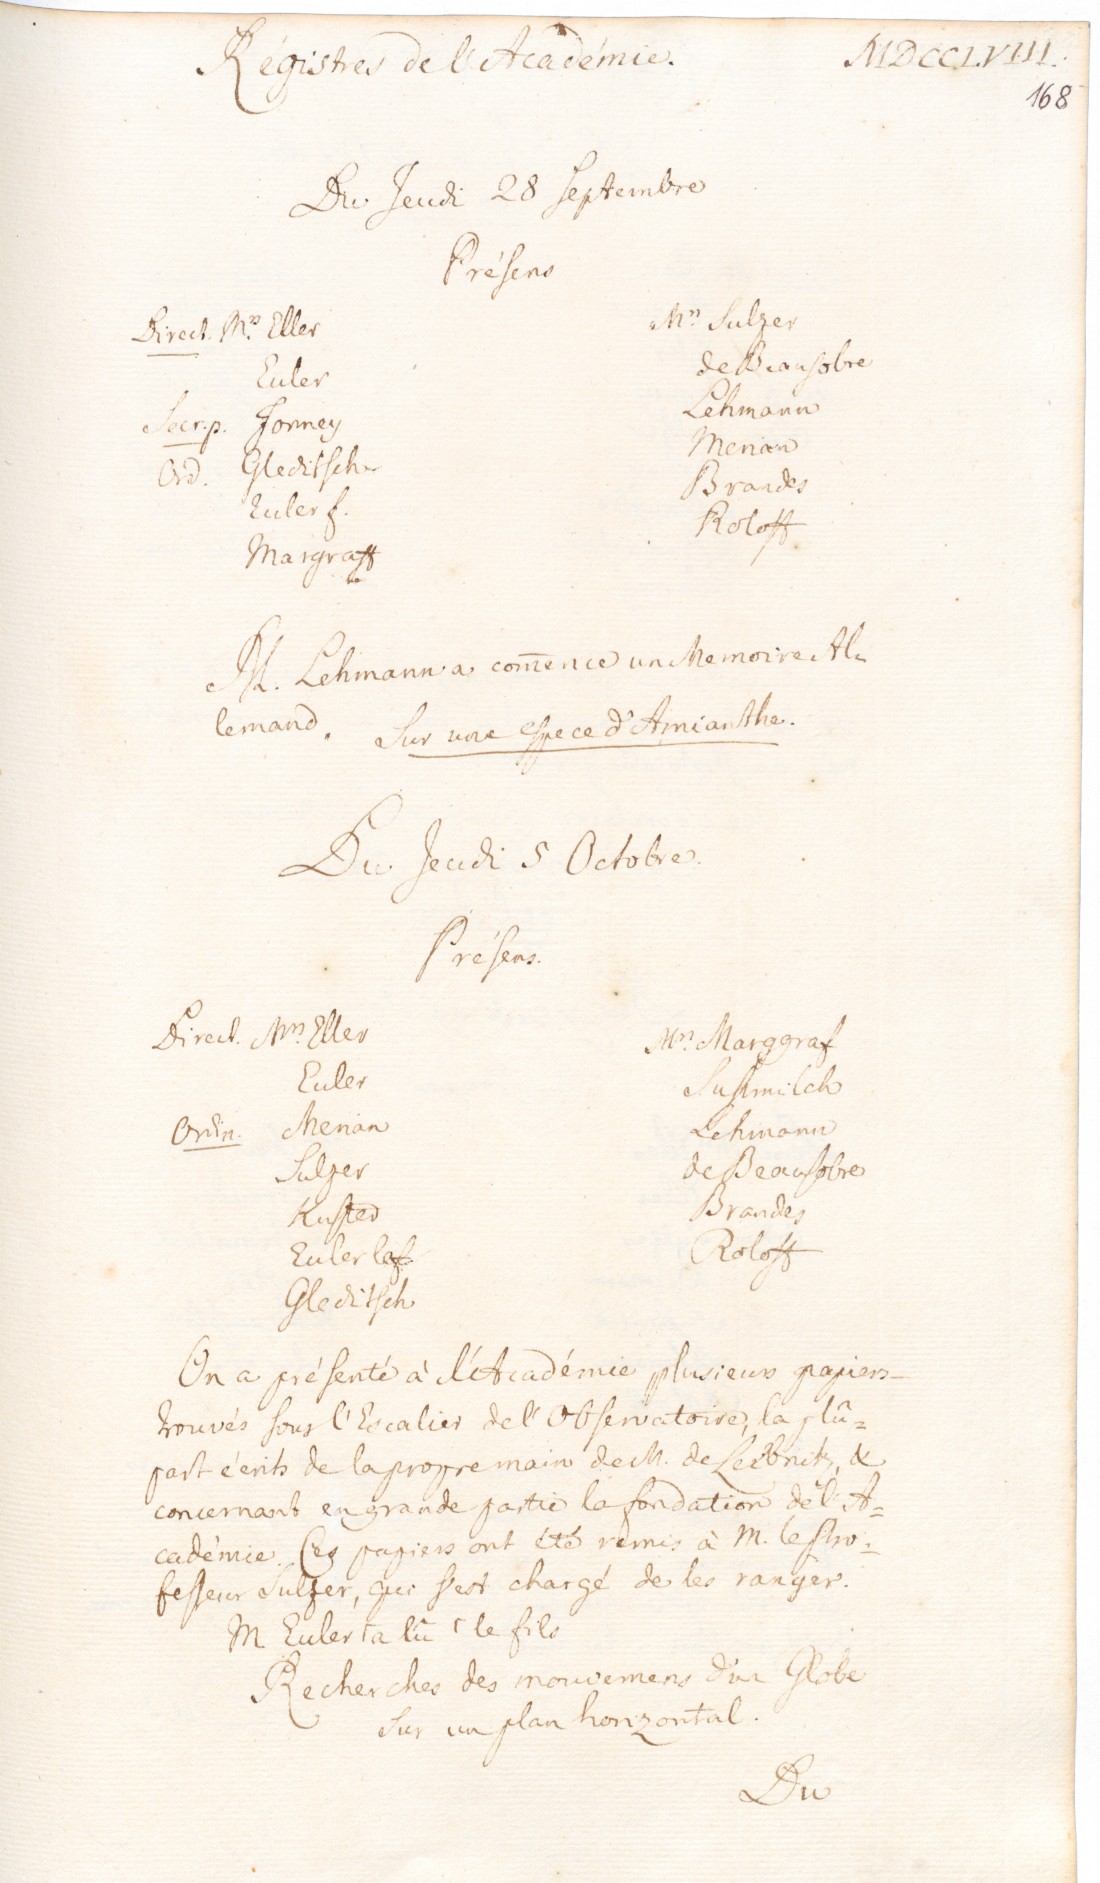 Régistres de l'Académie.
MDCCLVIII.
168
Du Jeudi 28 Septembre
Présens
Direct. Mrs Eller
Euler
Secr. p. Formey
Ord. Gleditsch
Euler f.
Margraff
Mrs Sulzer
de Beausobre
Lehmann
Merian
Brandes
Roloff
M. Lehmann a com̄encé un Memoire Al-
lemand, Sur une espece d'Amianthe.
Du Jeudi 5 Octobre.
Présens.
Direct. Mrs Eller
Euler
Ordin. Merian
Sulzer
Kuster
Euler le f.
Gleditsch
Mrs Marggraf
Susmilch
Lehmann
de Beausobre
Brandes
Roloff
On a présenté à l'Académie plusieurs papiers
trouvés sous l'Escalier de l'Observatoire, la plû-
part écrits de la propre main de M. de Leibnitz, &
concernant en grande partie la fondation de l'A-
cadémie. Ces papiers ont été remis à M. le Pro-
fesseur Sulzer, qui s'est chargé de les ranger.
M Euler a lû le fils
Recherches des mouvemens d'un Globe
sur un plan horizontal.
Du